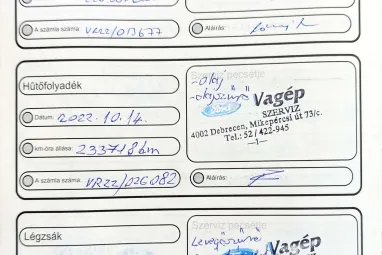 A számla száma: VR22/013677
Aláírás:
Hűtőfolyadék
Dátum: 2022.10.14.
km-óra állása: 233718 km
A számla száma: VR22/026082
Szerviz pecsétje
-olaj
-olajszűrő
Vagép
SZERVIZ
4002 Debrecen, Mikepércsi út 73/c.
Tel.: 52 / 422-945
—1—
Aláírás:
Légzsák
Szerviz pecsétje
Levegőszűrő
Vagép